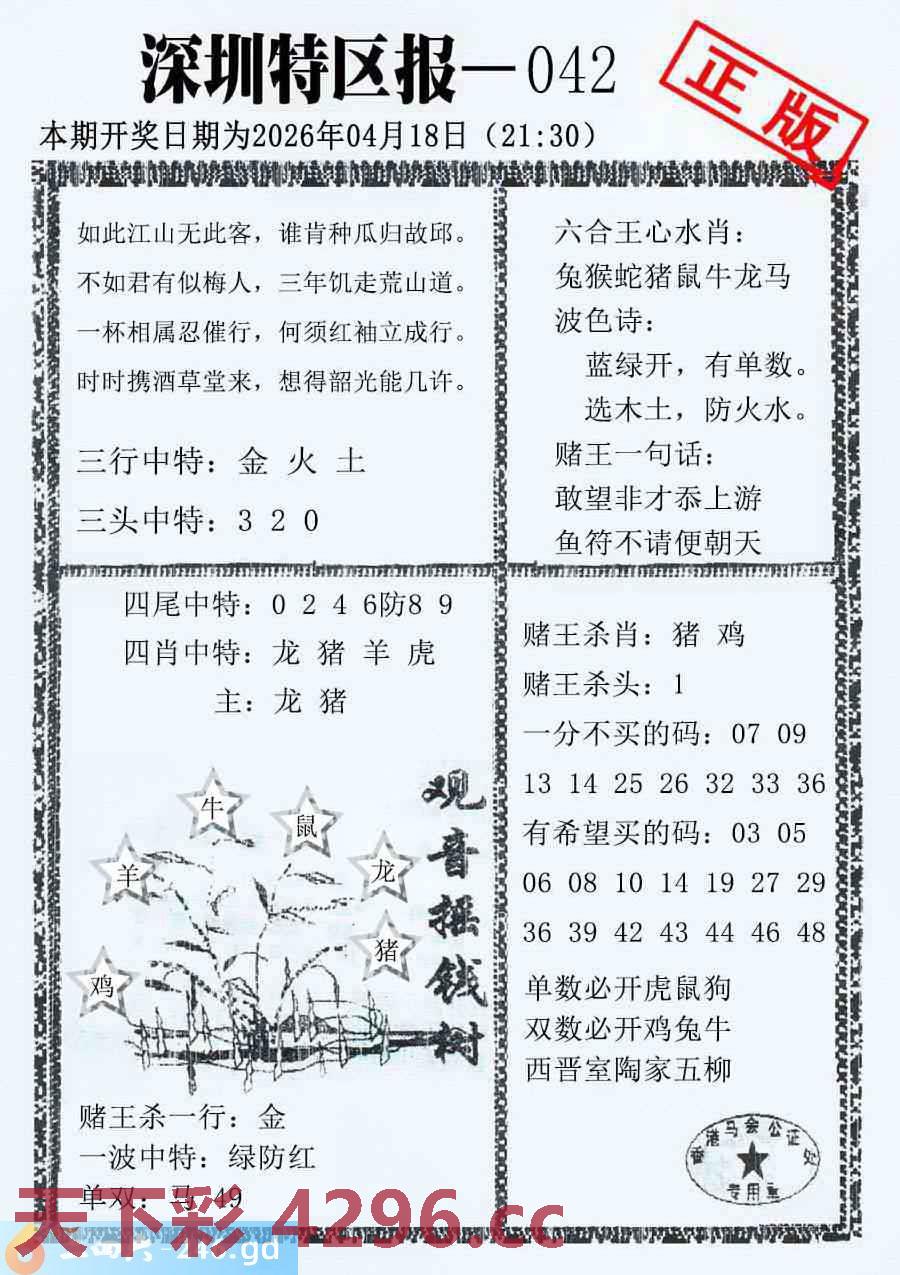 深圳特区报—042
正版
本期开奖日期为2026年04月18日（21:30）
如此江山无此客，谁肯种瓜归故邱。
不如君有似梅人，三年饥走荒山道。
一杯相属忍催行，何须红袖立成行。
时时携酒草堂来，想得韶光能几许。
三行中特：金 火 土
三头中特：3 2 0
六合王心水肖：
兔猴蛇猪鼠牛龙马
波色诗：
蓝绿开，有单数。
选木土，防火水。
赌王一句话：
敢望非才忝上游
鱼符不请便朝天
四尾中特：0 2 4 6防8 9
四肖中特：龙 猪 羊 虎
主：龙 猪
牛
鼠
羊
龙
猪
鸡
观音摇钱树
赌王杀一行：金
一波中特：绿防红
单双：马 49
赌王杀肖：猪 鸡
赌王杀头：1
一分不买的码：07 09
13 14 25 26 32 33 36
有希望买的码：03 05
06 08 10 14 19 27 29
36 39 42 43 44 46 48
单数必开虎鼠狗
双数必开鸡兔牛
西晋室陶家五柳
香港马会公证处
专用章
天下彩 4296.cc